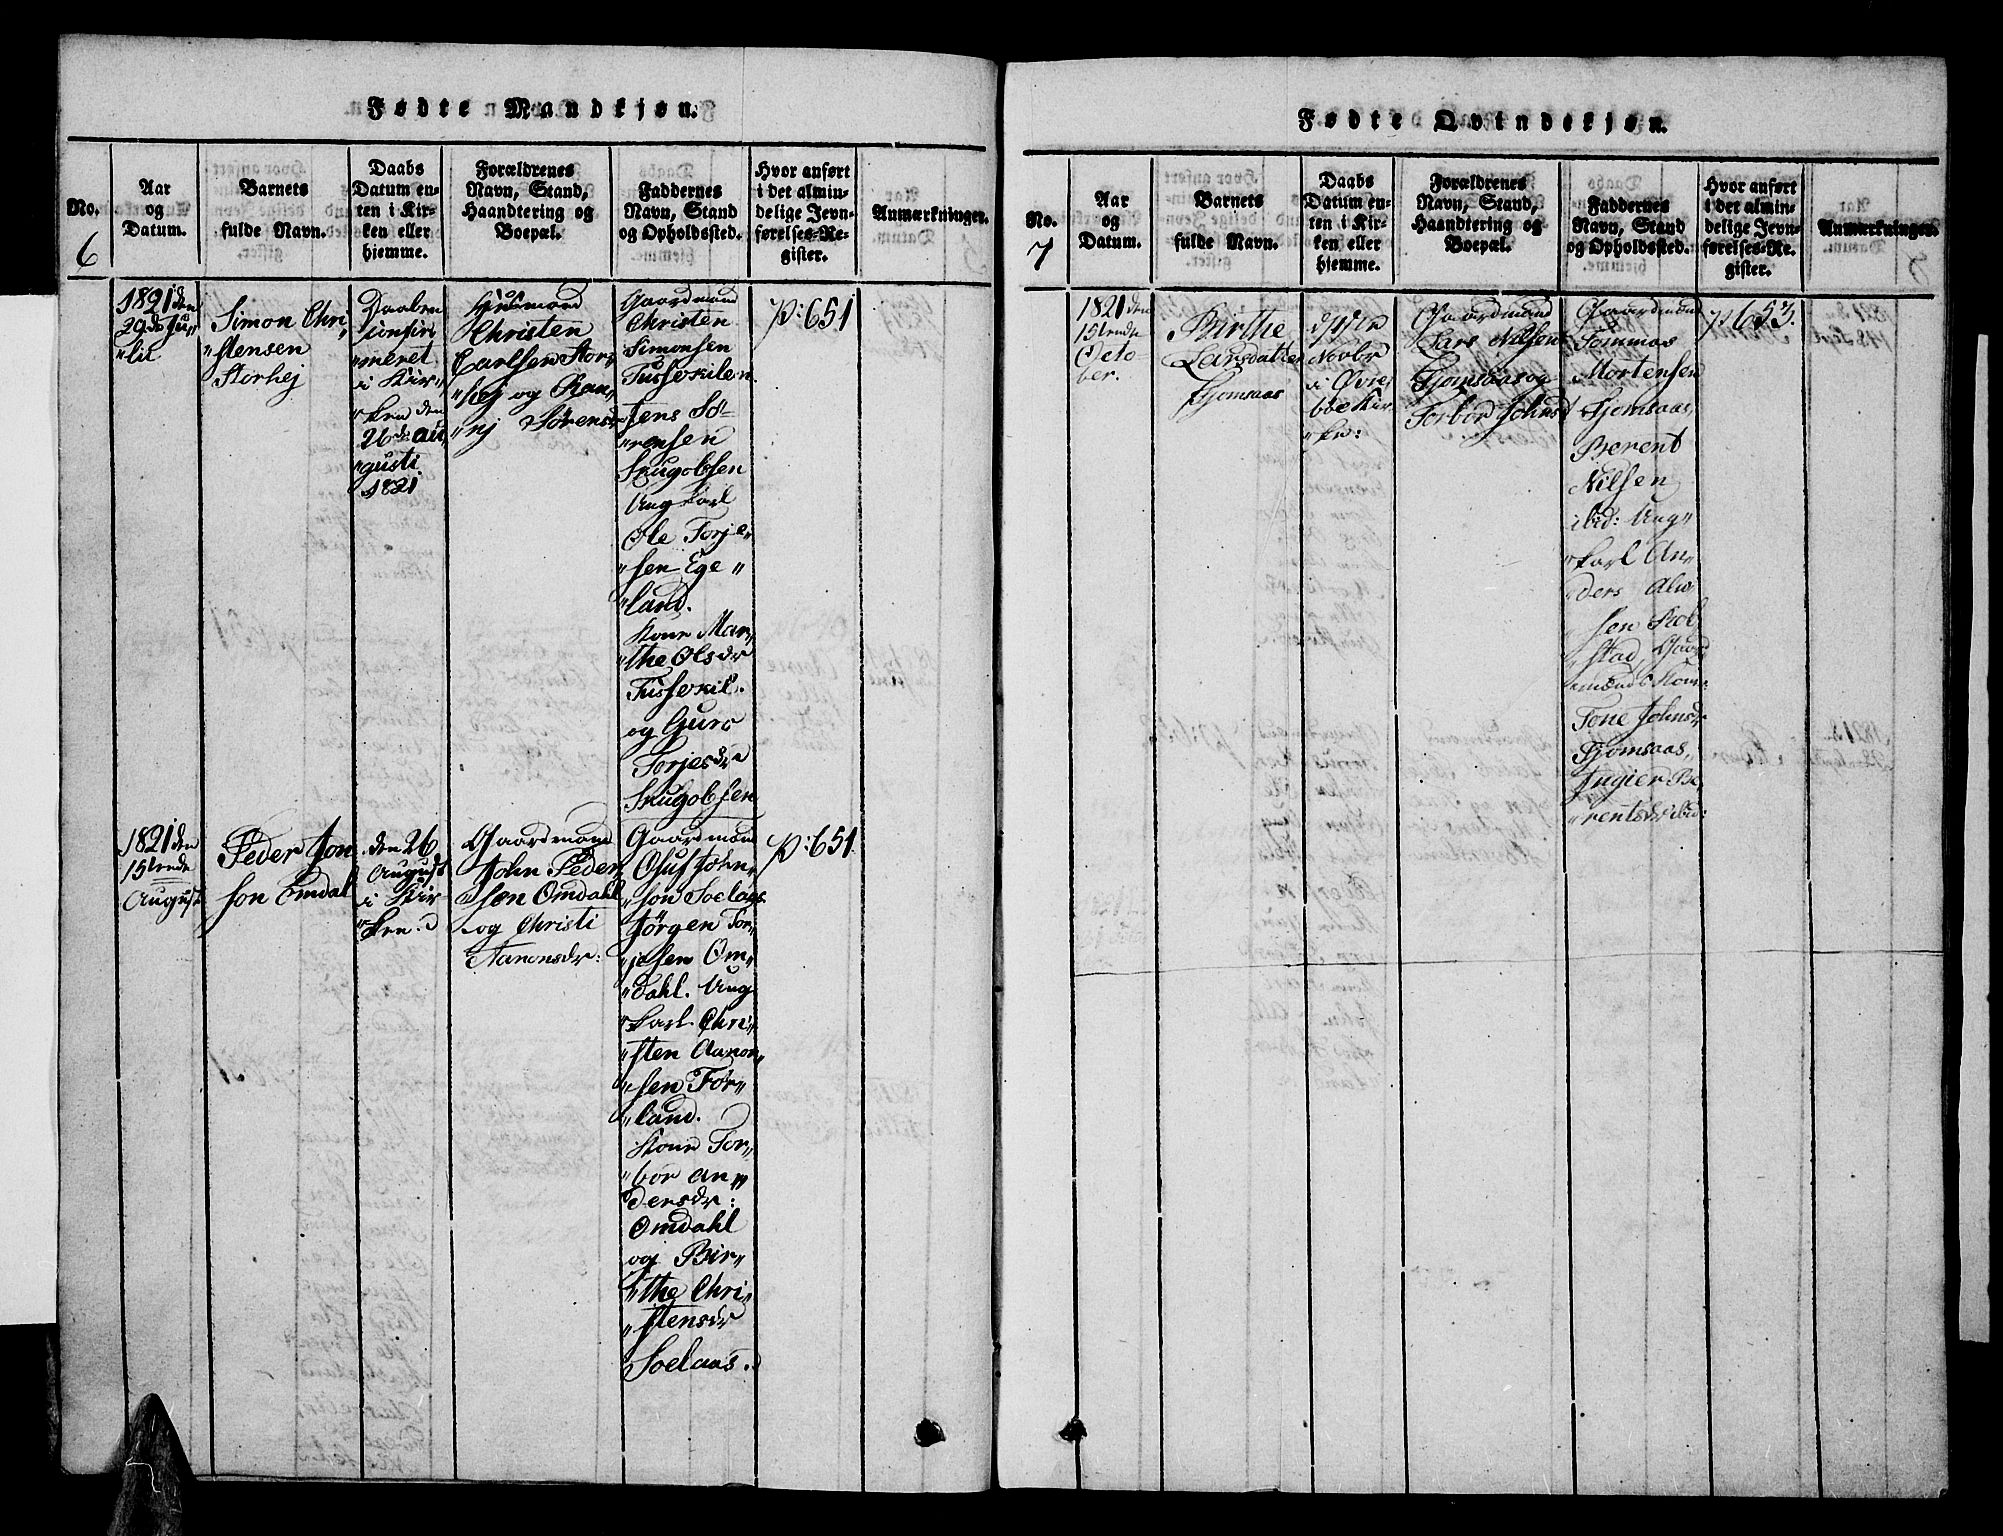 Fødte Mandkjøn.
No.
6
Aar
og
Datum.
Barnets
fulde Navn.
Daabs
Datum en-
ten i Kir-
ken eller
hjemme.
Forældrenes
Navn, Stand,
Haandtering og
Boepæl.
Faddernes
Navn, Stand
og Opholdssted.
Hvor anført
i det almin-
delige Jevn-
førelses-Re-
gister.
Anmærkninger.
1821 den
29de Ju„
„lii
Simon Chri„
„stensen
Storhej
Daaben
confir„
„meret
i Kir„
„ken den
26de Au„
„gusti
1821
Huusmand
Christen
Carlsen Stor„
„hej og Ran„
„nj Sørensdr
Gaardmand
Christen
Simonsen
Tusseskilen
Jens Sø„
„rensen
Skugolfsen
Ung Karl
Ole Torje„
„sen Ege„
„land.
Kone Mar„
„the Olsdr
Tusseskil.
og Guro
Torjesdr
Skugolfsen
P: 651
1821 den
15tende
August
Peder Jon
son Omdal
den 26
August
i Kir
„ken.
Gaardmand
John Peder
sen Omdahl
og Christi
Aaronsdr:
Gaardmand
Oluf John„
„son Soelaas
Jörgen Tor„
„jesen Om„
„dahl. Ung
„karl Chri„
„sten Aaron„
„sen Før„
„land.
Kone Tor„
„bor An„
„dersdr:
Omdahl
og Bir„
„the Chri„
„stensdr
Soelaas.
P: 651
Fødte Qvindekjøn.
No.
7
Aar
og
Datum.
Barnets
fulde Navn.
Daabs
Datum en-
ten i Kir-
ken eller
hjemme.
Forældrenes
Navn, Stand,
Haandtering og
Boepæl.
Faddernes
Navn, Stand
og Opholdssted.
Hvor anført
i det almin-
delige Jevn-
førelses-Re-
gister.
Anmærkninger.
1821 den
15tende
Octo
ber.
Birthe
Larsdatter
Fjomsaas
Novbr
i Øvre
boe Kir
„ke:
Gaardmand
Lars Nilsen
Fjomsaas og
Torbor Johnsd
Gaardmand
Tommas
Mortensen
Fjomsaas,
Berent
Nilsen
ibid: Ung„
„karl An„
„ders Alw
„sen Rob
„stad, Gaard
„mands Kone:
Tone Johnsdr
Fjomsaas,
Ingier Be„
„rentsdr ibid:
P 653.